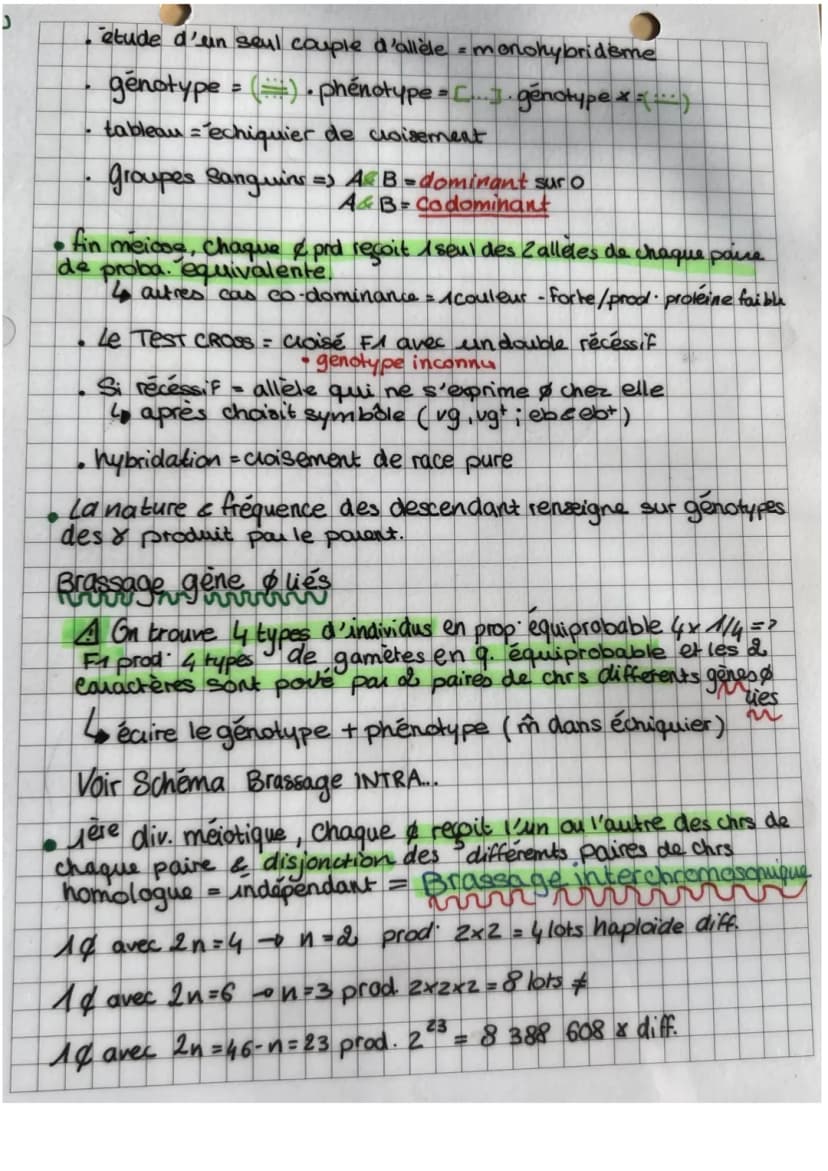 . étude d'un seul couple d'allèle = monohybridisme
. génotype = (...) . phénotype = [...] . génotype ɤ = (...)
. tableau = échiquier de croisement
. groupes sanguins => A & B = dominant sur O
A & B = Codominant
• fin méiose, chaque ¢ prd reçoit 1 seul des 2 allèles de chaque paire
de proba. équivalente.
↳ autres cas co-dominance = 1 couleur - forte/prod. protéine faible
. Le TEST CROSS = croisé F1 avec un double récéssif
• génotype inconnu
. Si récéssif = allèle qui ne s'exprime ∅ chez elle
↳ après choisit symbôle (vg, vg+ ; eb & eb+)
. hybridation = croisement de race pure
• La nature & fréquence des descendant renseigne sur génotypes
des ɤ produit par le parent.
Brassage gène ∅ liés
⚠ On trouve 4 types d'individus en prop. équiprobable 4 x 1/4 =>
F1 prod. 4 types de gamètes en q. équiprobable et les 2
caractères sont porté par 2 paires de chrs differents gènes ∅
liés
↳ écrire le génotype + phénotype (m̂ dans échiquier)
Voir Schéma Brassage INTRA...
• 1ère div. méiotique, chaque ¢ reçoit l'un ou l'autre des chrs de
chaque paire & disjonction des différents paires de chrs
homologue = indépendant = Brassage interchromosomique
1¢ avec 2n=4 → n=2 prod. 2x2 = 4 lots haploïde diff.
1¢ avec 2n=6 → n=3 prod. 2x2x2 = 8 lots ≠
1¢ avec 2n=46 - n=23 prod. 2²³ = 8 388 608 ɤ diff.